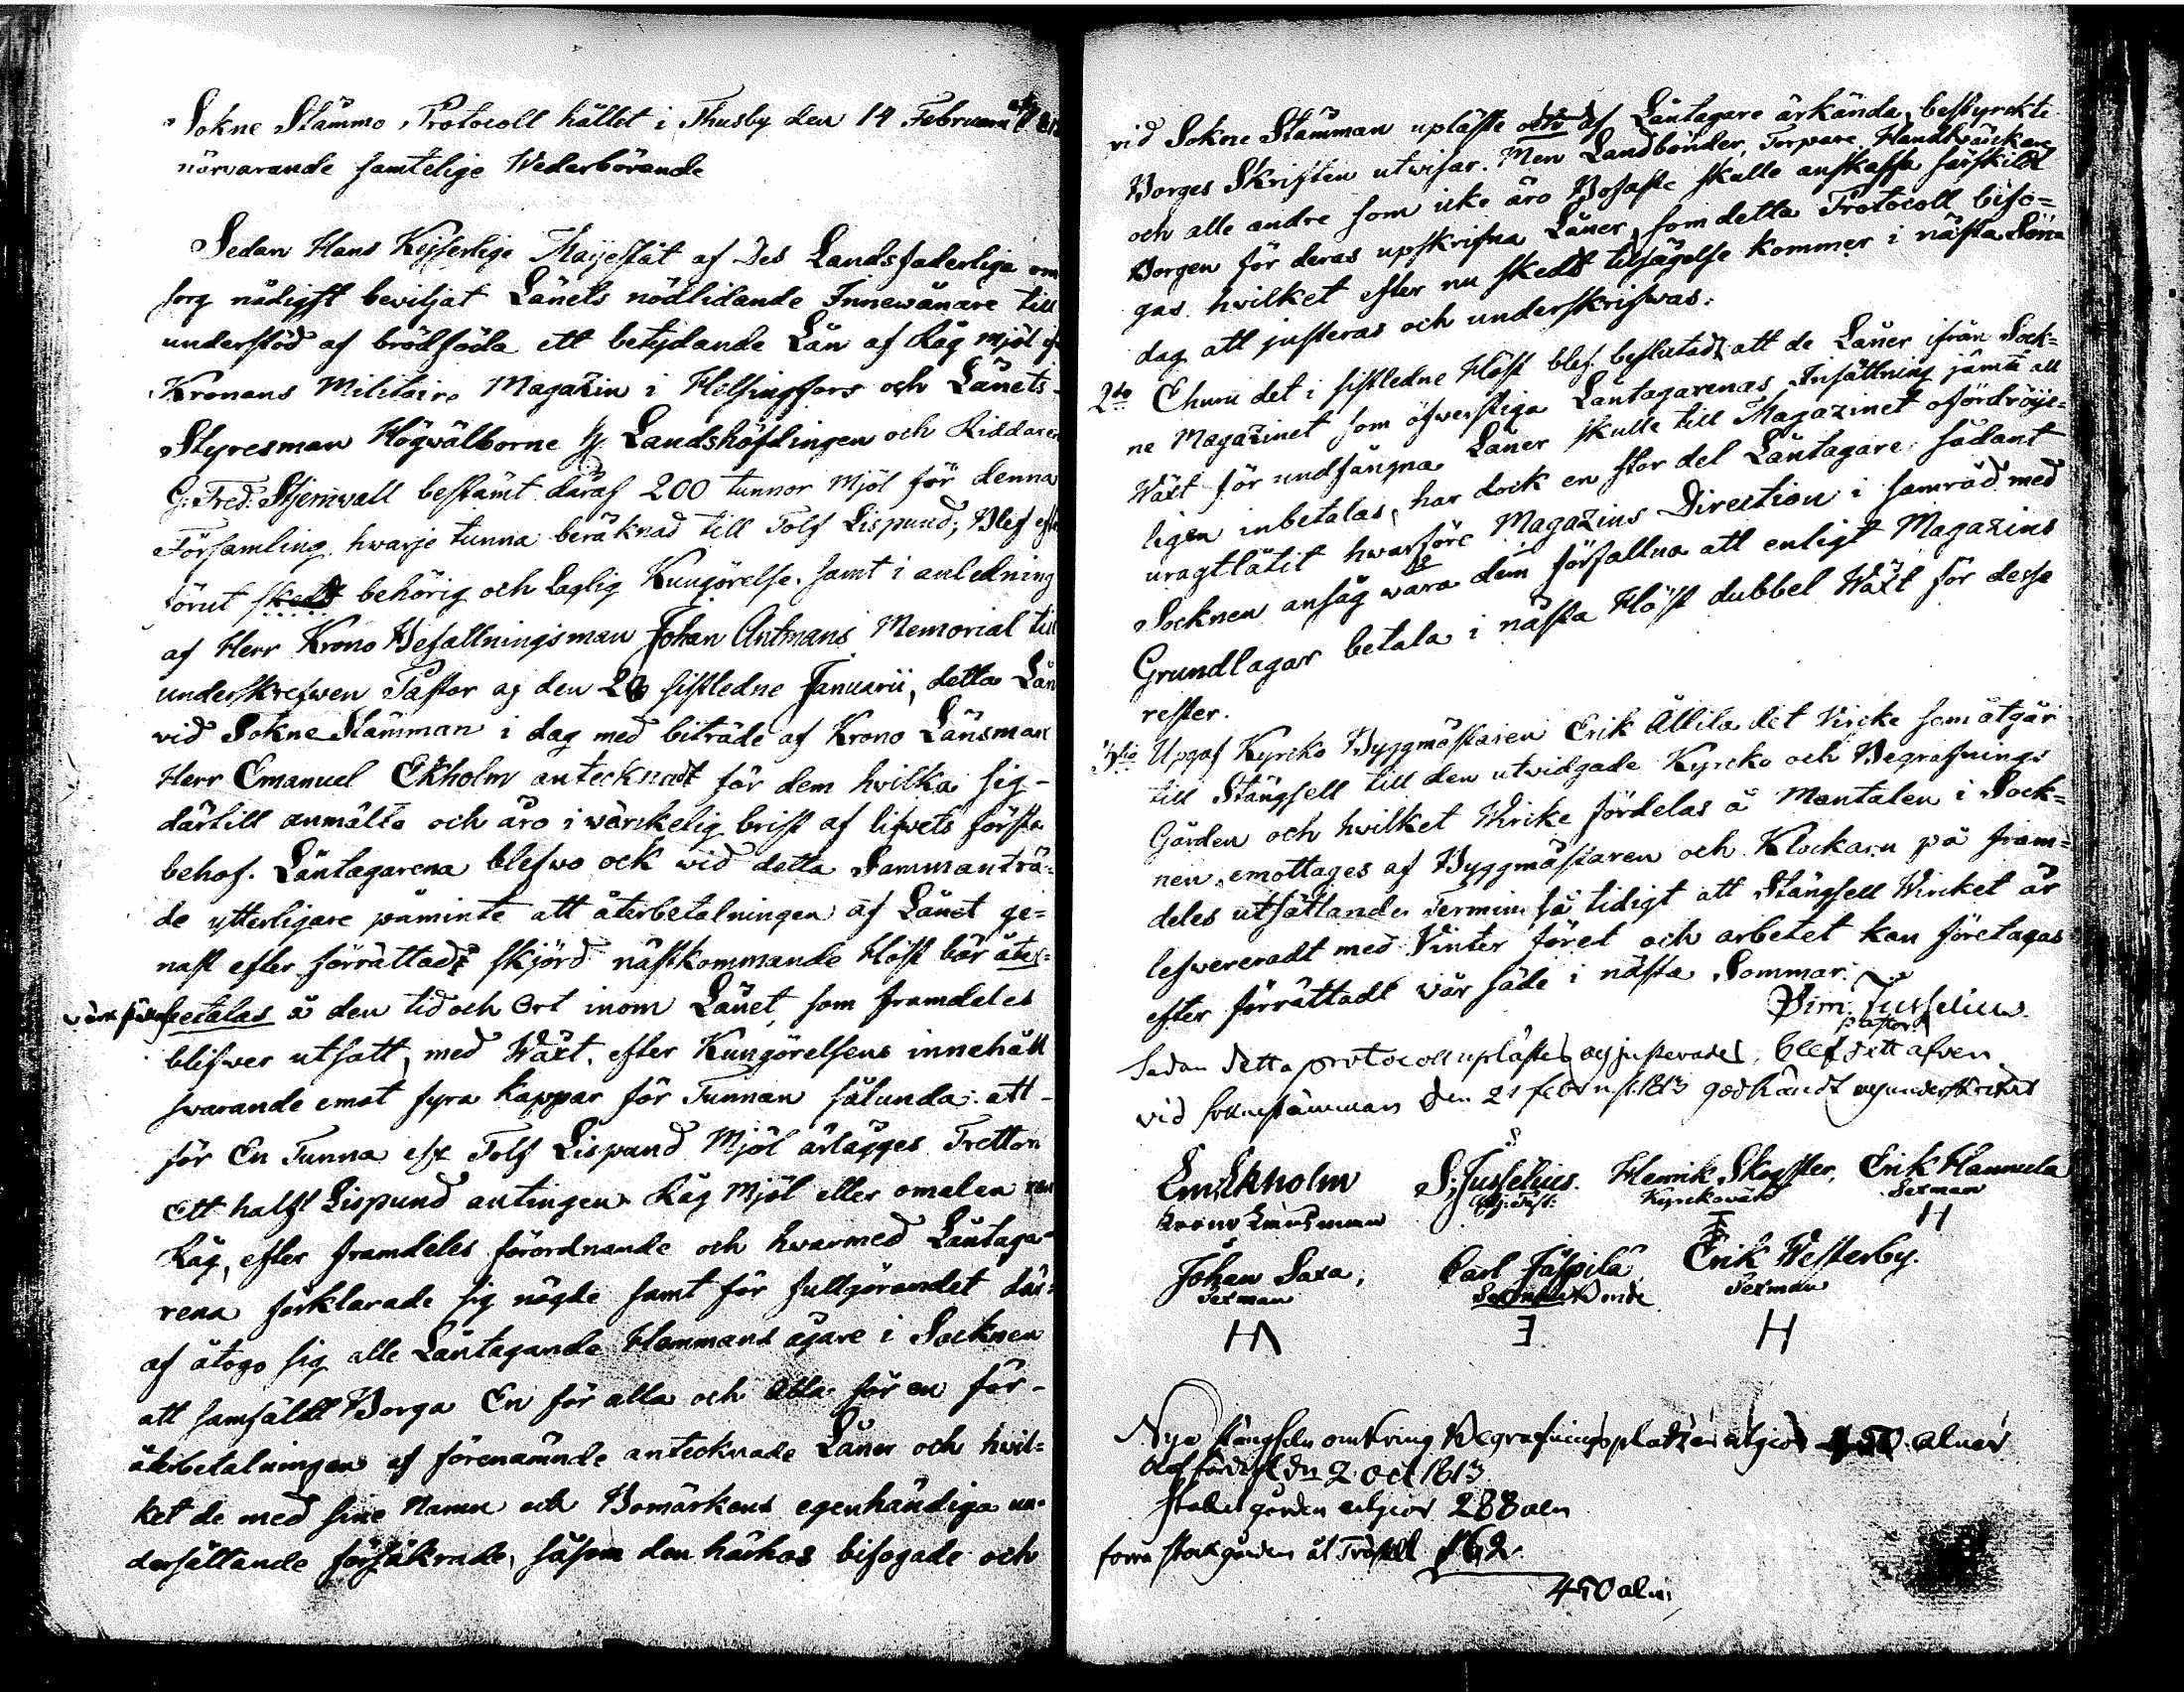 Sokne Stämmo Protocoll hållet i Thusby den 14 Februarii
närvarande samtelige Wederbörande
Sedan Hans Kejserlige Mayestät af Des Landsfaderliga om
sorg nådigst beviljat Länets nödlidande Innewånare till
understöd af brödföda ett betydande Lån af Råg mjöl
Kronans Militaire Magazin i Helsingfors och Länets
Styresman Högwälborne Hr Landshöfdingen och Riddaren
G: Fred: Stjernvall bestämt däraf 200 tunnor Mjöl för denna
Församling, hwarje tunna beräknad till Tolf Lispund; Blef
förut skedt behörig och Laglig Kungörelse, samt i anledning
af Herr Krono Befallningsman Johan Antmans Memorial till
underskrefwen Pastor af den sistledne Januarii, detta Lån
vid Sokne Stämman i dag med biträde af Krono Länsman
Herr Emanuel Ekholm antecknadt för dem hvilka sig
därtill anmälte och äro i wärckelig brist af lifvets första
behof. Låntagarena blefwo ock wid detta Sammanträ-
de ytterligare påminte att återbetalningen af Lånet ge=
nast efter förrättad skjörd nästkommande Höst bör åter=
betalas å den tid och Ort inom Länet, som framdeles
blifwer utsatt, med Wäxt, efter Kungörelsens innehåll
swarande emot fyra kappar för Tunnan sålunda att
för En Tunna eller Tolf Lispund Mjöl ärlägges Tretton
ett halft Lispund antingen Råg Mjöl eller omalen ren
Råg, efter framdeles förordnande och hwarmed Låntaga=
rena förklarade sig nögde samt för fullgörandet där=
af åtogo sig alle Låntagande Hemmans ägare i Socknen
att samfäldt Borga En för alla och Alla för en för
återbetalningen af förenämnde antecknade Låner och hvil=
ket de med sine Namn och Bomärkens egenhändiga un=
dersättande försäkrade, såsom den härhos bifogade och
vid Sokne Stämman upläste af Låntagare ärkända, bestyrckte
Borges Skriften utwisar. Men Landbönder, Torpare, Handtvärckare
och alle andre som icke äro Bofaste skulle anskaffa särskild
Borgen för deras upskrifna Låner, som detta Protocoll bifo=
gas hvilket efter nu skedt tilsägelse kommer i nästa Sönn
dag att justeras och underskrifwas.
2do Ehuru det i sistledne Höst blef beslutadt att de Låner ifrån Sock=
ne Magazinet som öfwerstiga Låntagarenas Insättning jämte all
Wäxt för undfångna Låner skulle till Magazinet ofördröje=
ligen inbetalas, har dock en stor del Låntagare sådant
uragtlåtit hwarföre Magazins Direction i samråd med
Socknen ansåg wara dem förfallna att enligt Magazins
Grundlagar betala i nästa Höst dubbel Wäxt för desse
rester.
3tio Upgaf Kyrcko Byggmästaren Erik Attila det Vircke som åtgår
till Stängsell till den utvidgade Kyrcko och Begrafnings
Gården och hvilket Wircke fördelas å Mantalen i Sock=
nen, emottages af Byggmästaren och Klockaren på fram=
deles utsättande Termin så tidigt att Stängsell Wircket är
lefwereradt med Vinter föret och arbetet kan företagas
efter förrättadt vår såde i nästa Sommar.
Jusselius
Pastor
Sedan detta protocoll uplästes och justerades, blef det afven
vid soknestämman den 21 Febr. 1813 godkändt och underskrifvit
Em. Ekholm S. Jusselius Henrik Skogster, Erik Hannula
Krono Länsman Kyrckovärd Sexman
H
Johan Saxa, Carl Jäspilä Erik Westerby.
Sexman Sexman
HΛ Ǝ H
Nya stängseln omkring Begrafningsplatzen utgiör 450 alnar
den 2 Oct 1813
gården utgiör 288 aln
162
450 aln